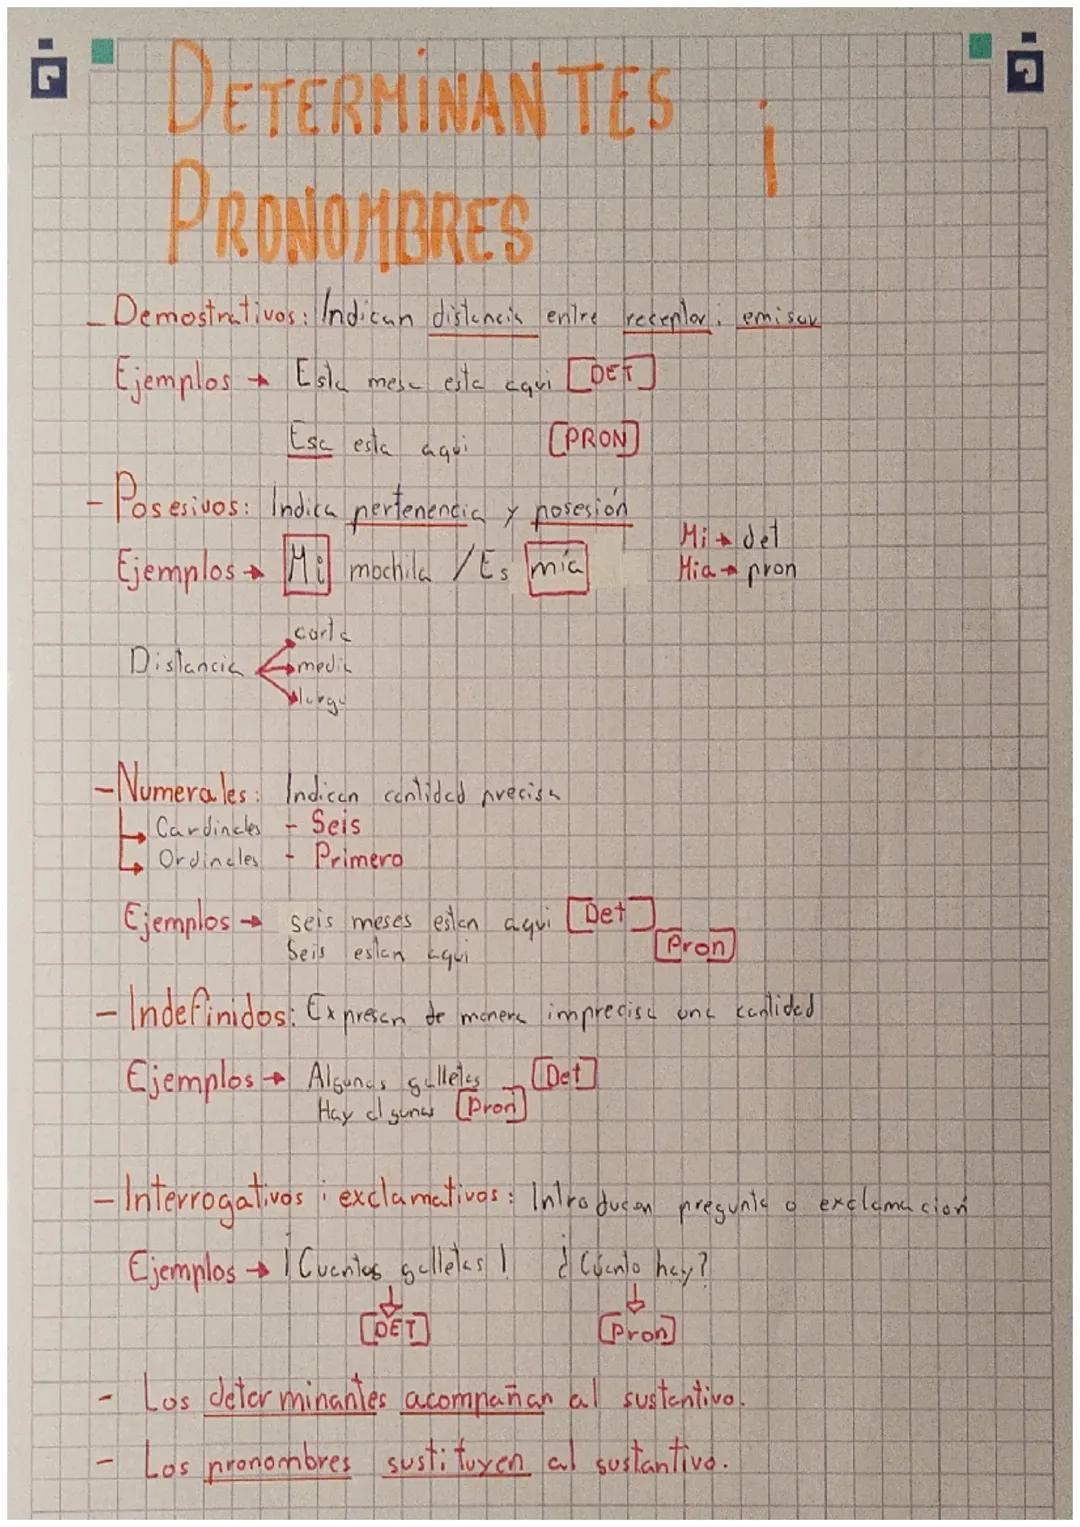 DETERMINANTES i
PRONOMBRES
- Demostrativos: Indican distancia entre receptor i emisor
Ejemplos → Esta mesa esta aqui [DET]
Esa esta aqui [PRON]
- Posesivos: Indica pertenencia y posesión
Ejemplos → Mi mochila / Es mía
Mi → det
Mia → pron
Distancia
corta
media
larga
- Numerales: Indican cantidad precisa
Cardinales - Seis
Ordinales - Primero
Ejemplos → seis meses estan aqui [Det]
Seis estan aqui [Pron]
- Indefinidos: Expresan de manera imprecisa una cantidad
Ejemplos → Algunas galletas [Det]
Hay algunas [Pron]
- Interrogativos i exclamativos: Introducen pregunta o exclamación
Ejemplos → ¡Cuantas galletas! ¿Cúanto hay?
[DET] [Pron]
- Los determinantes acompañan al sustantivo.
- Los pronombres sustituyen al sustantivo.